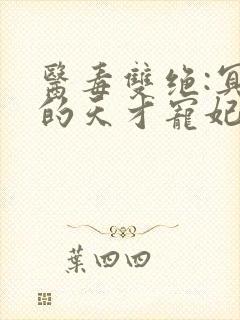 醫毒雙绝:冥
的天才寵妃
葉四四